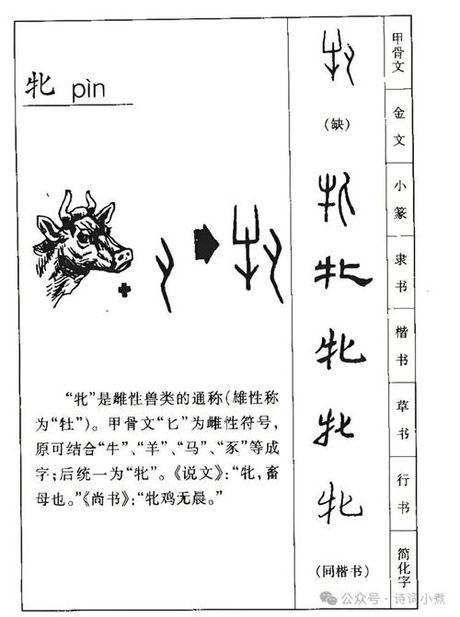 牝 pìn
“牝”是雌性兽类的通称(雄性称
为“牡”)。甲骨文“匕”为雌性符号,
原可结合“牛”、“羊”、“马”、“豕”等成
字;后统一为“牝”。《说文》:“牝,畜
母也。”《尚书》:“牝鸡无晨。”
牝 甲骨文
(缺) 金文
牝 小篆
牝 隶书
牝 楷书
牝 草书
牝 行书
(同楷书) 简化字
公众号·诗词小煮